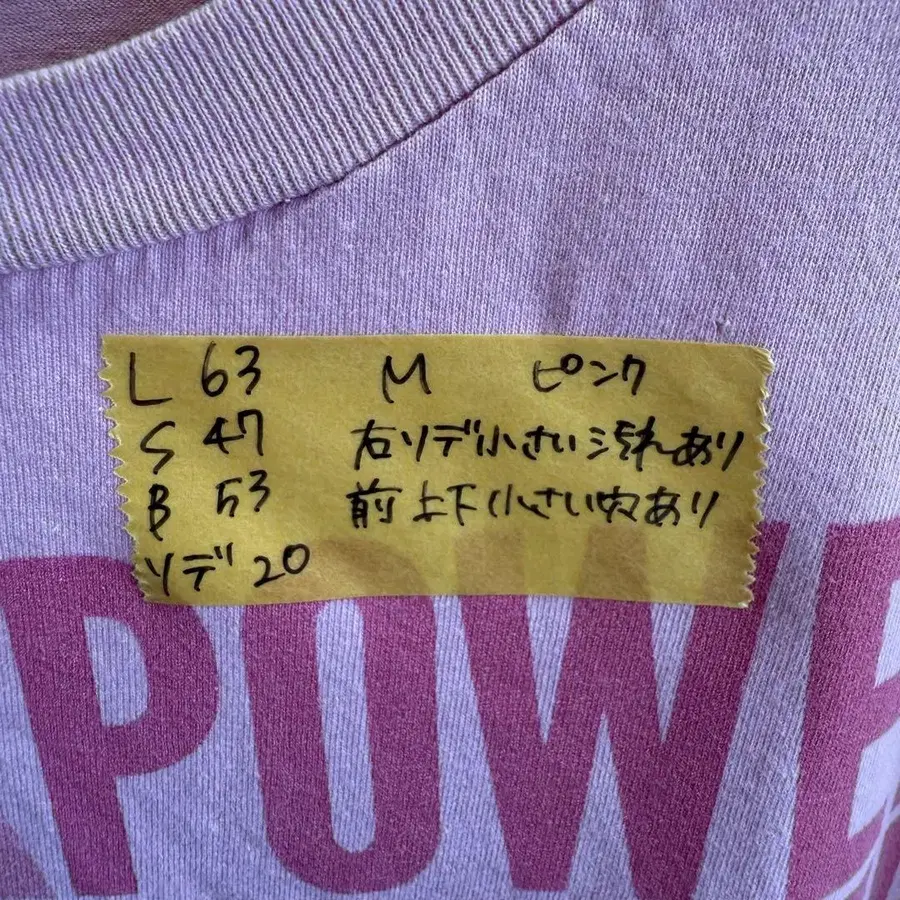 L 63 M ピンク
S 47 右ソデ小さい汚れあり
B 53 前上下小さい穴あり
ソデ 20
POWE